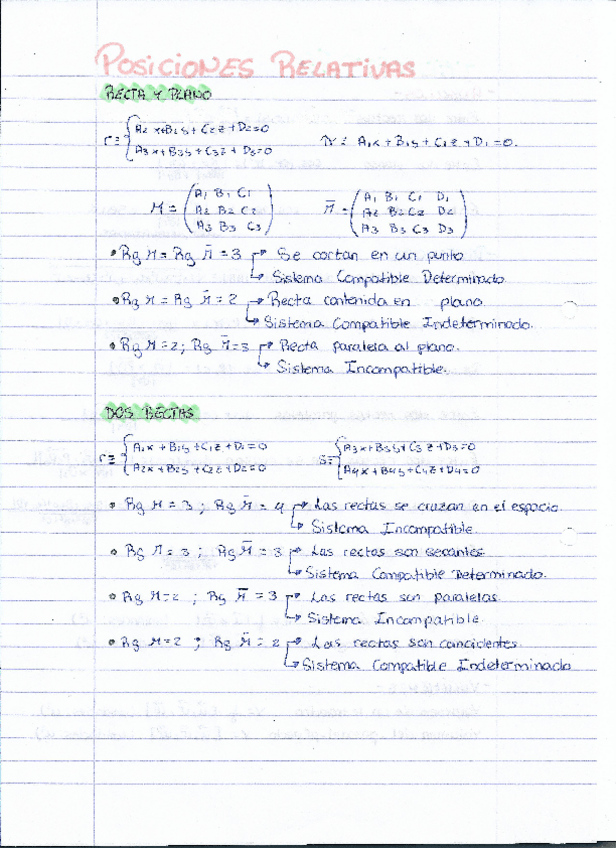 POSICIONES RELATIVAS
RECTA Y PLANO
r ≡ { A2x+B2y+C2z+D2=0
A3x+B3y+C3z+D3=0
π ≡ A1x+B1y+C1z+D1=0.
M = ( A1 B1 C1
A2 B2 C2
A3 B3 C3 )
M̄ = ( A1 B1 C1 D1
A2 B2 C2 D2
A3 B3 C3 D3 )
• Rg M = Rg M̄ = 3 → Se cortan en un punto
→ Sistema Compatible Determinado.
• Rg M = Rg M̄ = 2 → Recta contenida en plano
→ Sistema Compatible Indeterminado.
• Rg M = 2; Rg M̄ = 3 → Recta paralela al plano.
→ Sistema Incompatible.
DOS RECTAS
r ≡ { A1x+B1y+C1z+D1=0
A2x+B2y+C2z+D2=0
s ≡ { A3x+B3y+C3z+D3=0
A4x+B4y+C4z+D4=0
• Rg M = 3 ; Rg M̄ = 4 → Las rectas se cruzan en el espacio.
→ Sistema Incompatible.
• Rg M = 3 ; Rg M̄ = 3 → Las rectas son secantes
→ Sistema Compatible Determinado.
• Rg M = 2 ; Rg M̄ = 3 → Las rectas son paralelas.
→ Sistema Incompatible.
• Rg M = 2 ; Rg M̄ = 2 → Las rectas son coincidentes.
→ Sistema Compatible Indeterminado